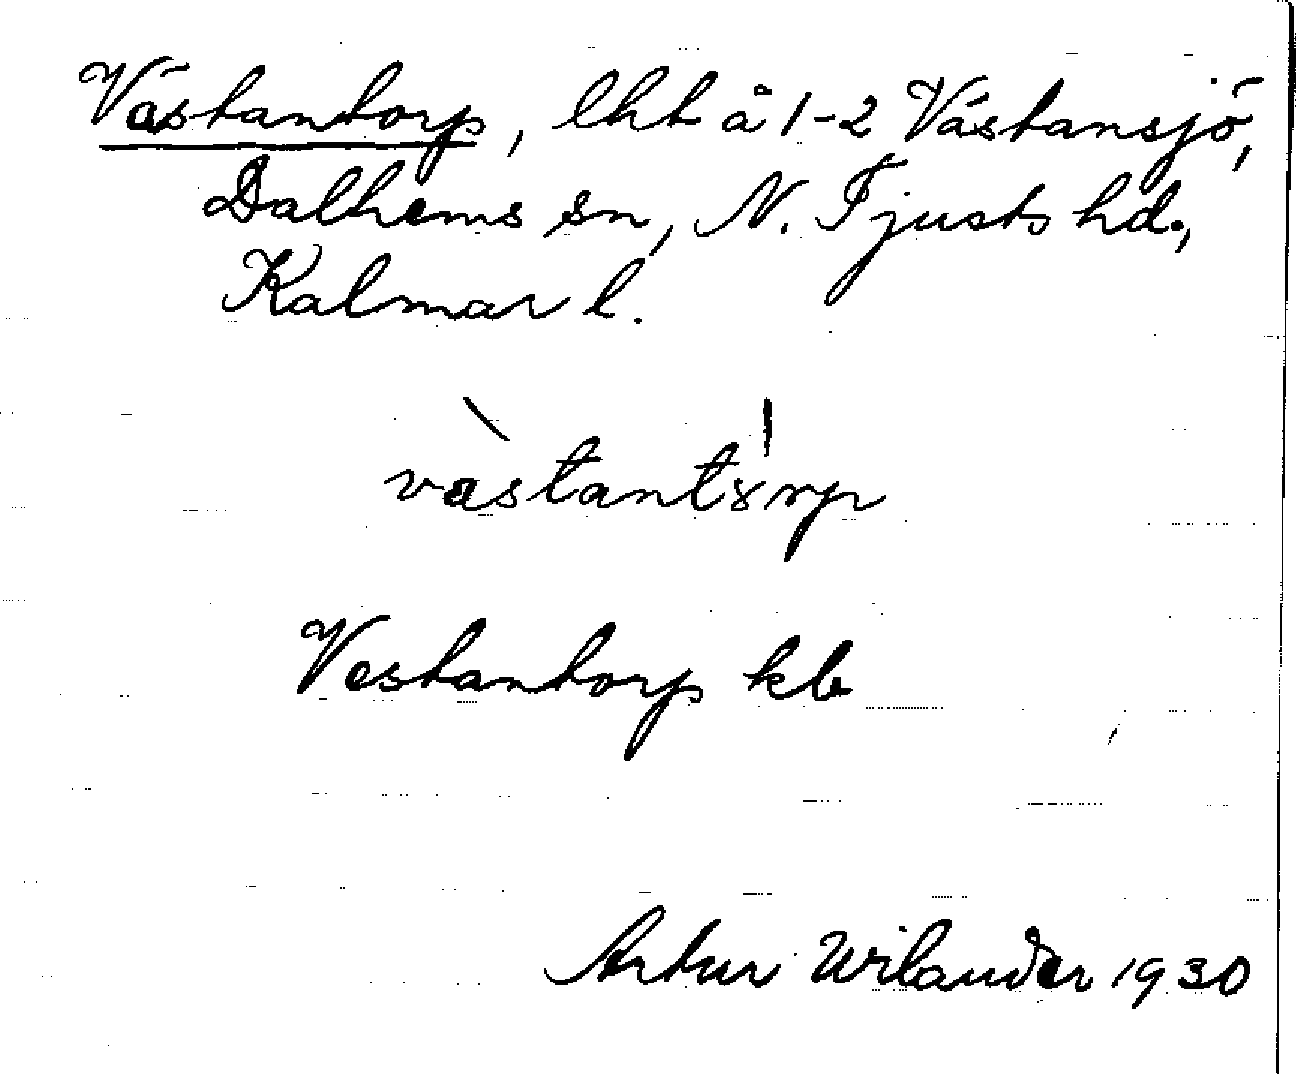 Västantorp, lht å 1-2 Västansjö,
Dalhems sn, N. Tjusts hd.,
Kalmar l.
vàstantərp
Vestantorp kb
Artur Wilander 1930